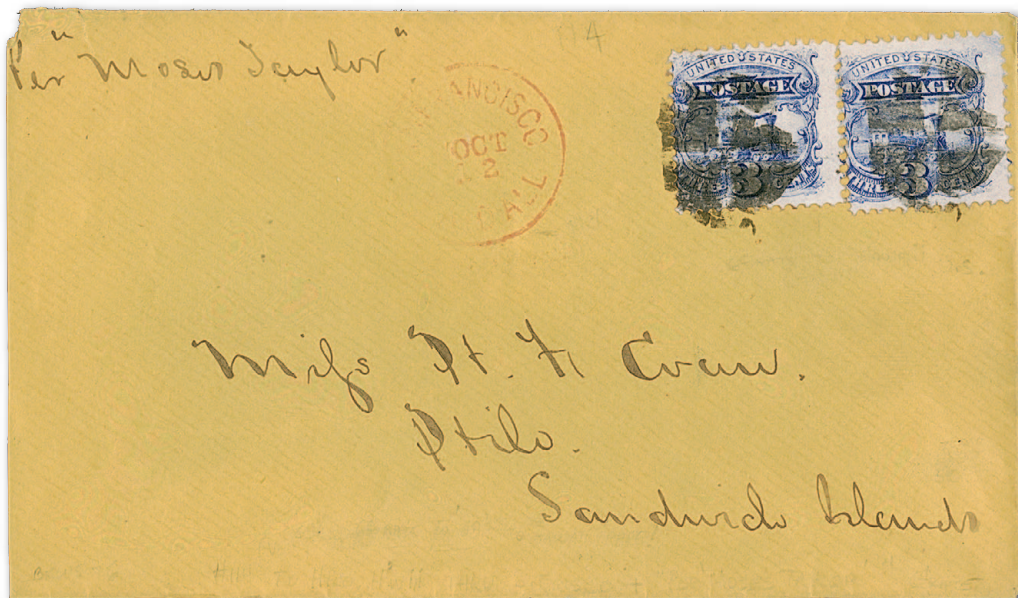 Per "Moses Taylor"
114
FRANCISCO
OCT
2
CAL
UNITED STATES
POSTAGE
3
THREE CENTS
UNITED STATES
POSTAGE
3
THREE CENTS
Miss H. F. Evans.
Hilo.
Sandwich Islands